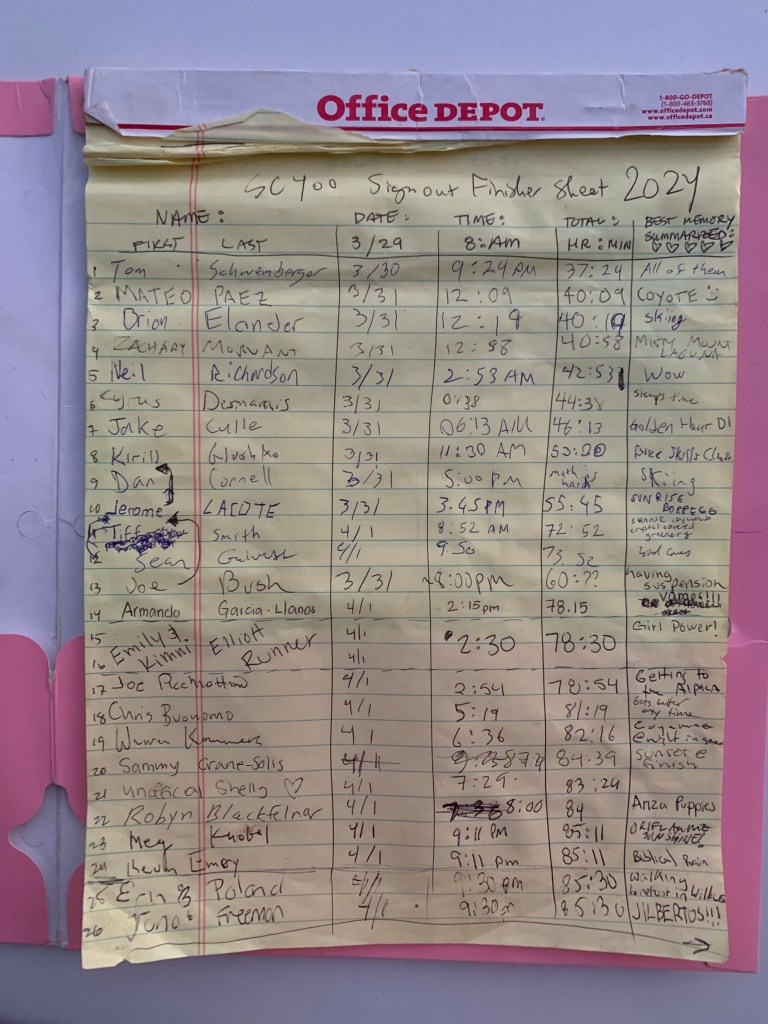 Office DEPOT.
1-800-GO-DEPOT
(1-800-463-3768)
www.officedepot.com
www.officedepot.ca
SC400 Sign out Finisher Sheet 2024
NAME: DATE: TIME: TOTAL: BEST MEMORY
SUMMARIZED:
FIRST LAST 3/29 8:AM HR:MIN ♡♡♡♡♡
1 Tom Schwemberger 3/30 9:24 PM 37:24 All of them
2 MATEO PAEZ 3/31 12:09 40:09 COYOTE
3 Orion Elander 3/31 12:19 40:19 skiing
4 ZACHARY MORVANT 3/31 12:58 40:58 MISTY MOUNT LAGUNA
5 Neil Richardson 3/31 2:53 AM 42:53 Wow
6 Cyrus Desmarais 3/31 44:38 time
7 Jake Culle 3/31 06:13 AM 46:13 Golden Hour D1
8 Kirill Glushko 3/31 11:30 AM
9 Dan Cornell 3/31 5:00 PM math is hard SKiing
10 Jerome LACOTE 3/31 3.45PM 55:45 SUNRISE BORREGO
11 Tiff Smith 4/1 8:52 AM 72:52 crystal covered greenery
12 Sean 4/1 9:50 73.52
13 Joe Bush 3/31 ~8:00pm 60:?? having suspension
14 Armando Garcia-Llanos 4/1 2:15pm 78.15 VAMES!!!
15 Emily & Elliott 4/1 2:30 78:30 Girl Power!
16 Kimmi Runner 4/1
17 Joe 4/1 2:54 78:54 Getting to the Alpaca
18 Chris Buonomo 4/1 5:19 81:19 Gets better any time
19 4/1 6:36 82:16
20 Sammy Crane-Solis 4/1 84:39 Sunset @ finish
21 unofficial Shelly ♡ 4/1 7:29 83:29
22 Robyn Blackfelner 4/1 8:00 84 Anza Puppies
23 Meg Knobel 4/1 9:11 PM 85:11 ORIFLAMME SUNSHINE!
24 Emey 4/1 9:11 pm 85:11 Biblical Rain
25 Erin & Poland 4/1 9:30 pm 85:30 Walking
26 Juno Freeman 4/1 9:30 85:30 JILBERTOS!!!